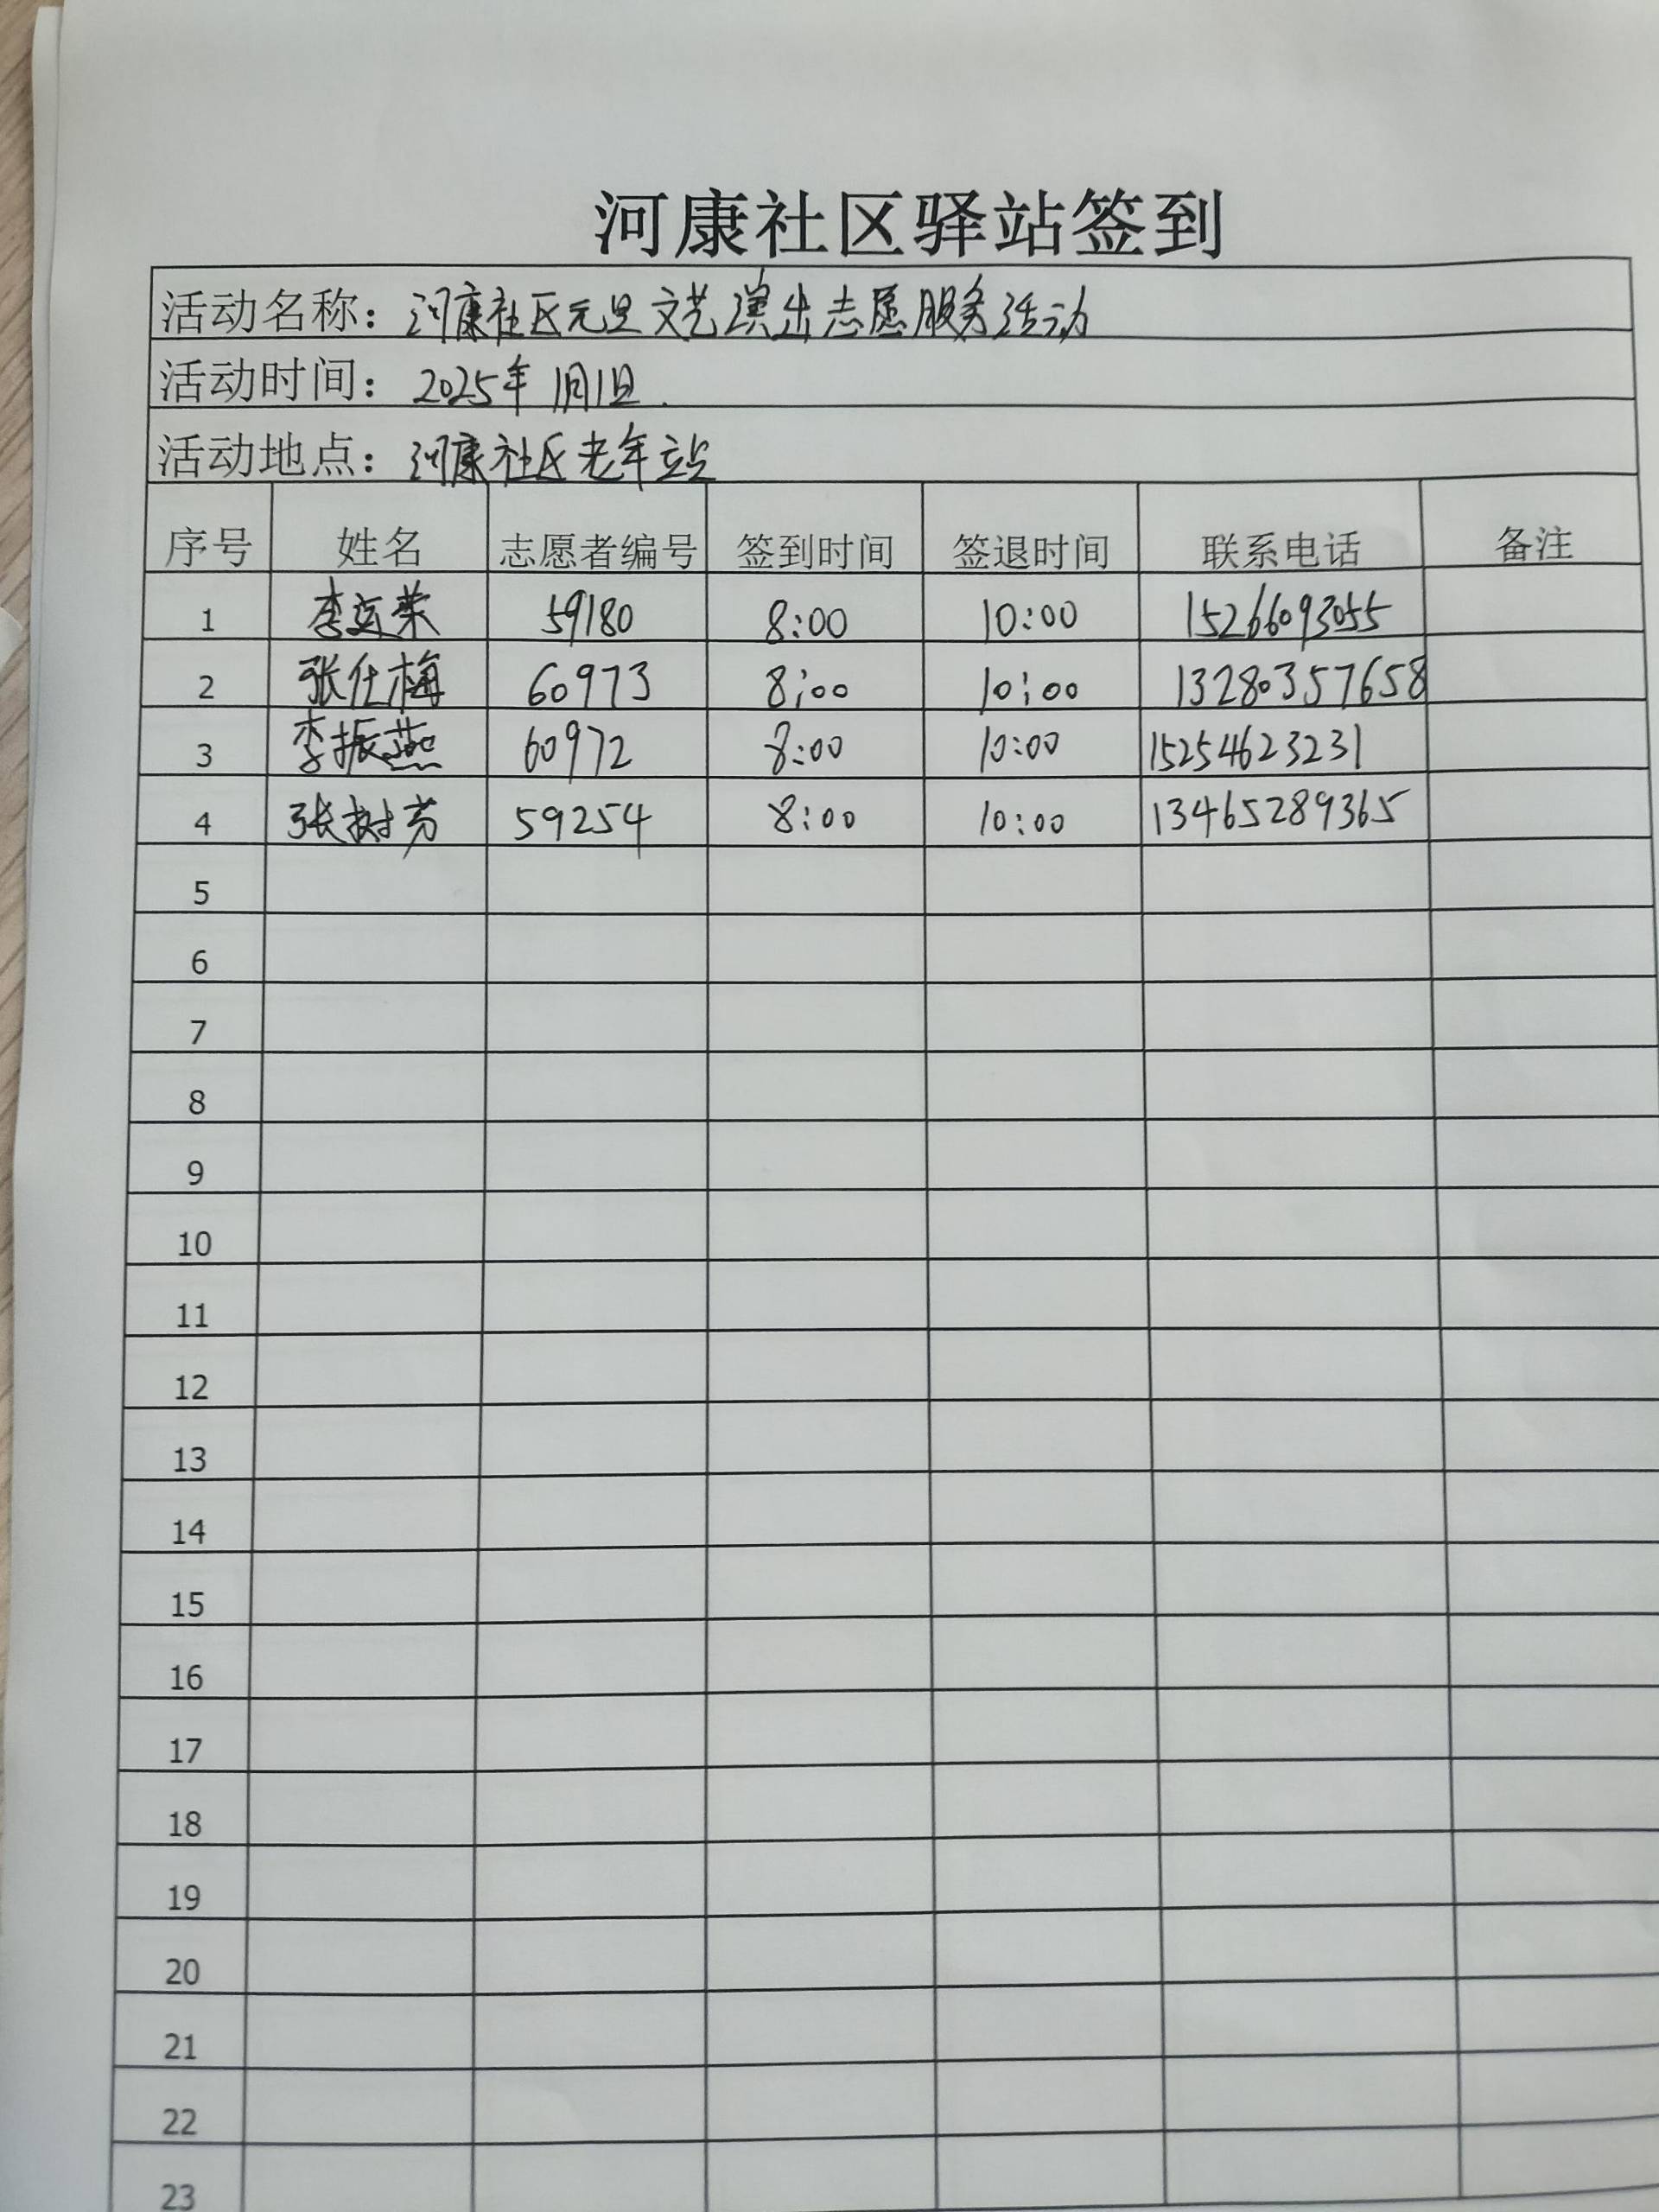 河康社区驿站签到
活动名称：河康社区元旦文艺演出志愿服务活动
活动时间：2025年1月1日.
活动地点：河康社区老年站
序号 姓名 志愿者编号 签到时间 签退时间 联系电话 备注
1 李立荣 59180 8:00 10:00 15266093055
2 张仕梅 60973 8:00 10:00 13280357658
3 李振燕 60972 8:00 10:00 15254623231
4 张树芳 59254 8:00 10:00 13465289365
5
6
7
8
9
10
11
12
13
14
15
16
17
18
19
20
21
22
23